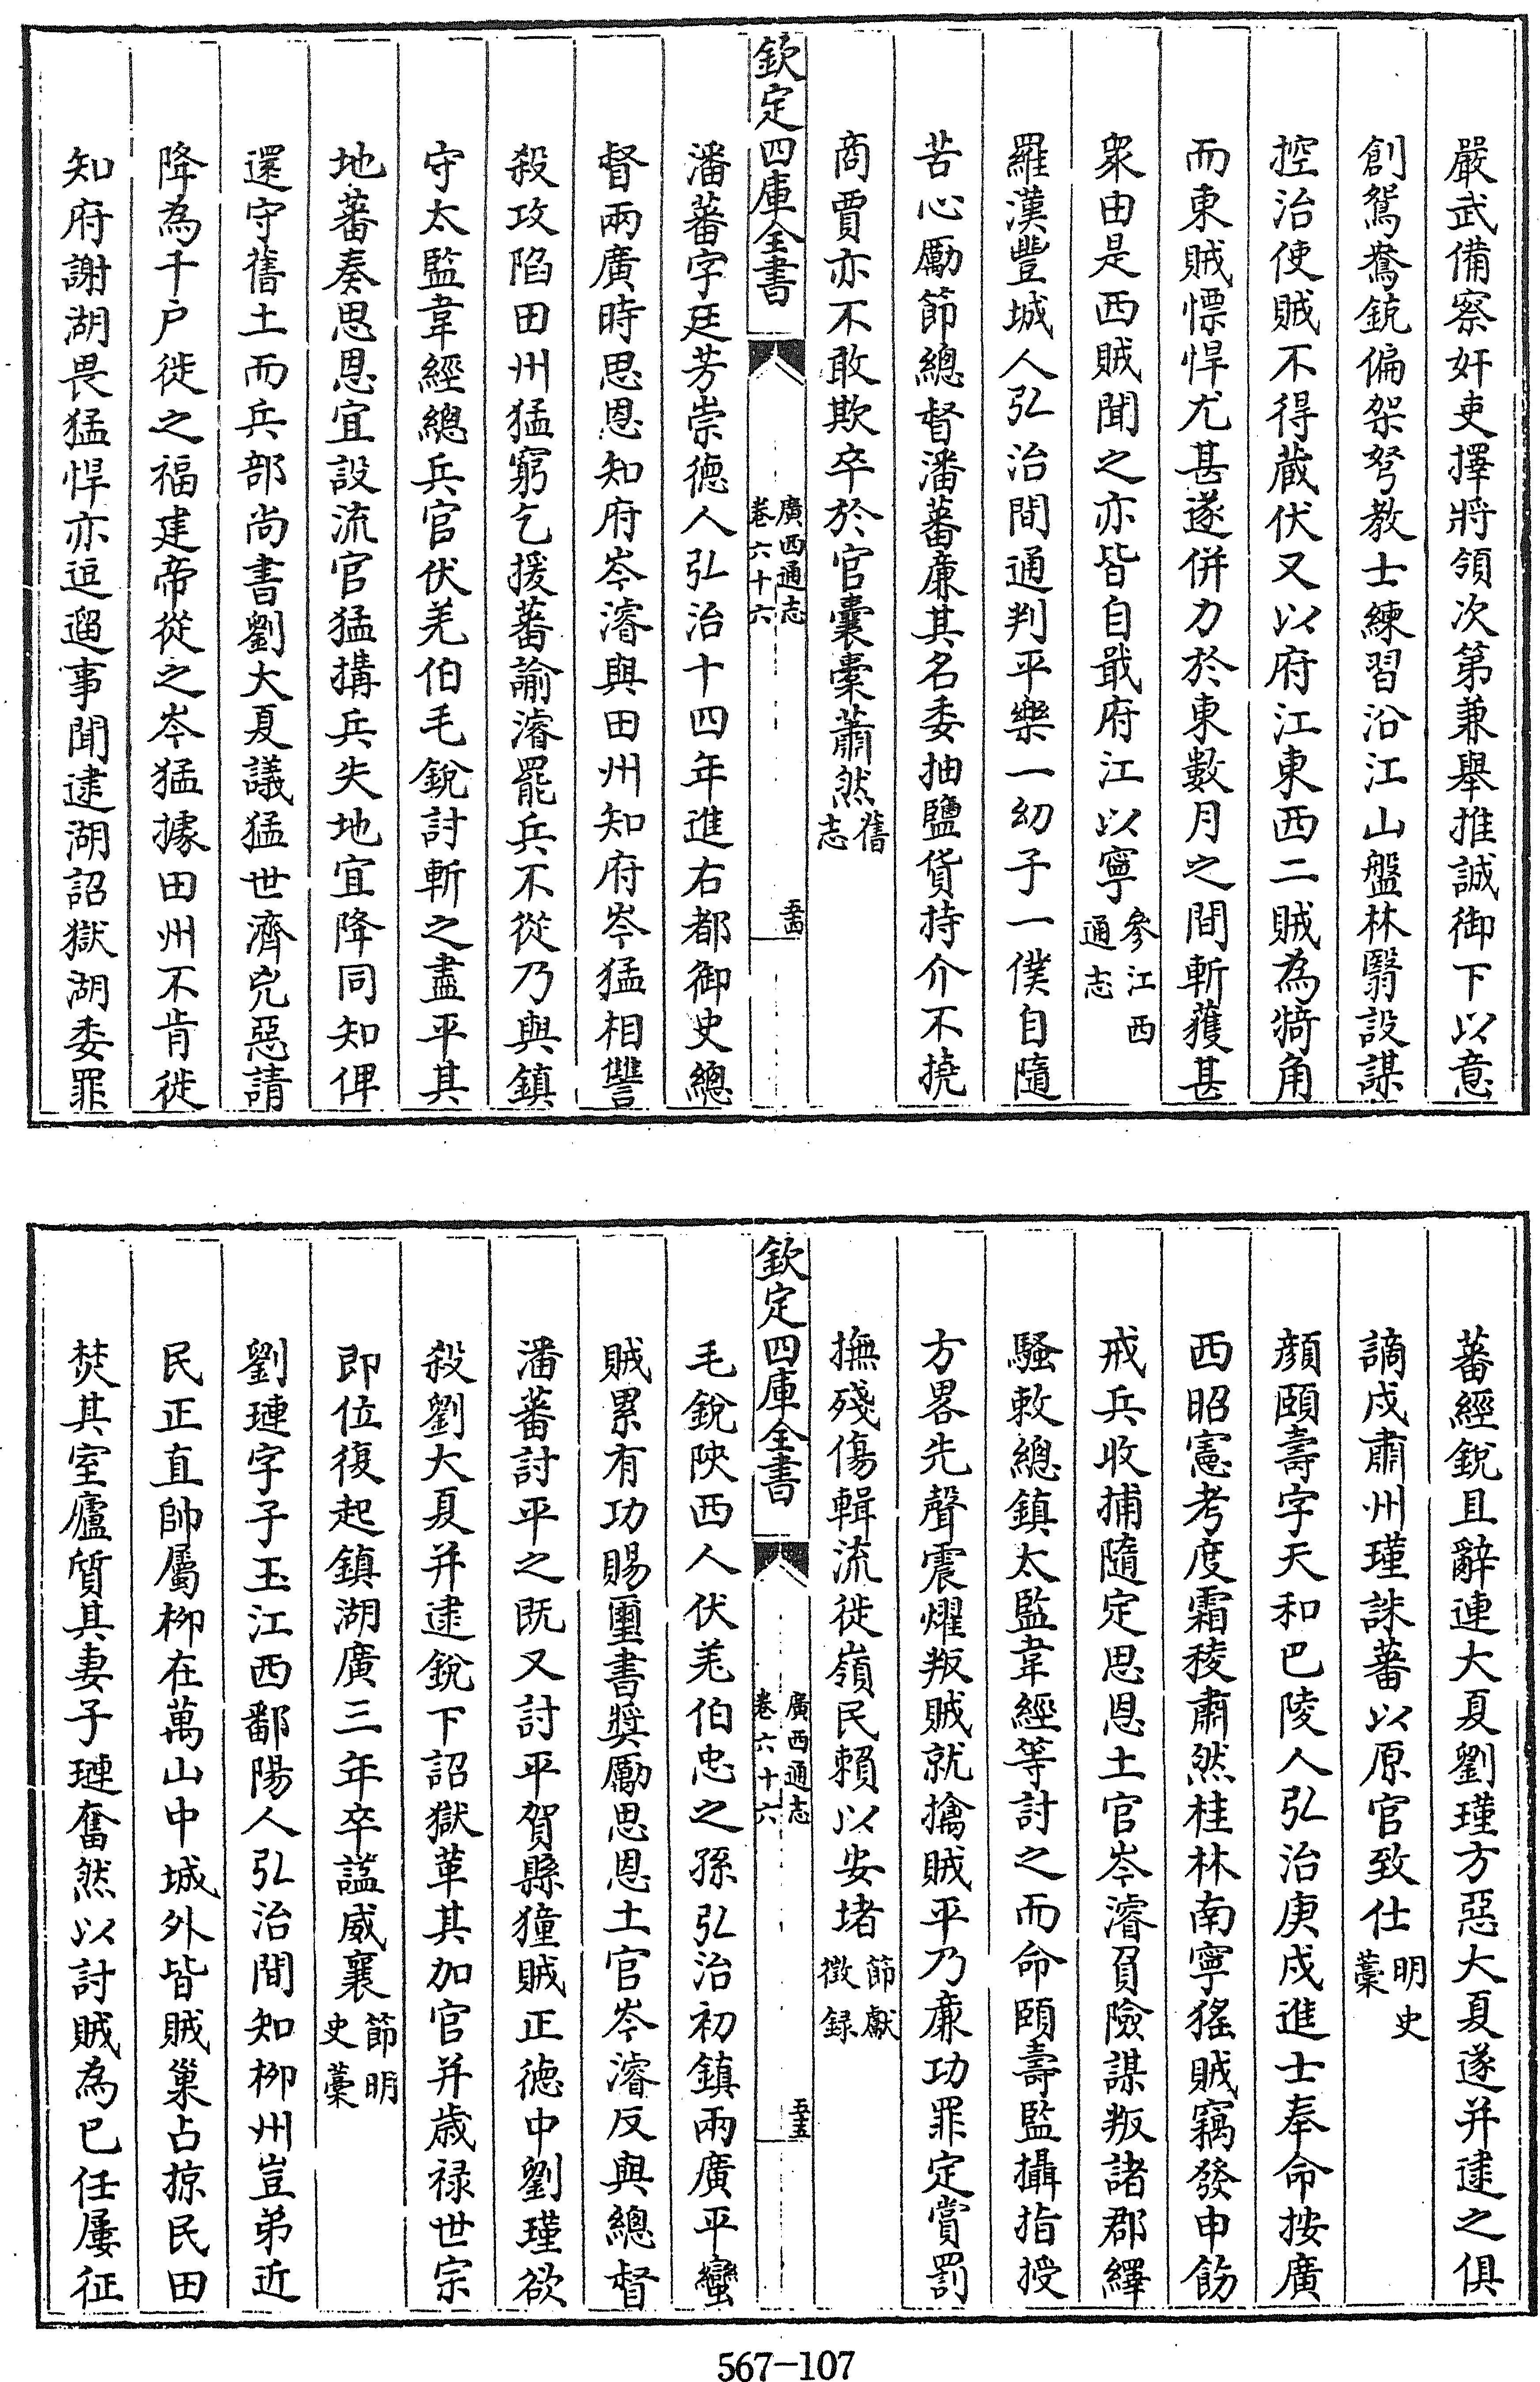 嚴武備察奸吏擇將領次第兼舉推誠御下以意
創鴛鴦銃偏架弩教士練習沿江山盤林翳設謀
控治使賊不得蔵伏又以府江東西二賊為犄角
而東賊慓悍尤甚遂併力於東數月之間斬獲甚
衆由是西賊聞之亦皆自戢府江以寧參江西通志
羅漢豐城人弘治間通判平樂一幼子一僕自隨
苦心勵節總督潘蕃亷其名委抽鹽貨持介不撓
商賈亦不敢欺卒於官囊橐蕭然舊志
欽定四庫全書
廣西通志
卷六十六
五十四
潘蕃字廷芳崇德人弘治十四年進右都御史總
督兩廣時思恩知府岑濬與田州知府岑猛相讐
殺攻陷田州猛窮乞援蕃諭濬罷兵不從乃與鎮
守太監韋經總兵官伏羌伯毛銳討斬之盡平其
地蕃奏思恩宜設流官猛搆兵失地宜降同知俾
還守舊土而兵部尚書劉大夏議猛世濟兇惡請
降為千户徙之福建帝從之岑猛據田州不肯徙
知府謝湖畏猛悍亦逗遛事聞逮湖詔獄湖委罪
蕃經銳且辭連大夏劉瑾方惡大夏遂并逮之俱
謫戍肅州瑾誅蕃以原官致仕明史藁
顔頤壽字天和巴陵人弘治庚戌進士奉命按廣
西昭憲考度霜稜肅然桂林南寧猺賊竊發申飭
戒兵收捕隨定思恩土官岑濬負險謀叛諸郡繹
騷敕總鎮太監韋經等討之而命頤壽監攝指授
方畧先聲震燿叛賊就擒賊平乃亷功罪定賞罰
撫殘傷輯流徙嶺民賴以安堵節獻徵録
欽定四庫全書
廣西通志
卷六十六
五十五
毛銳陝西人伏羌伯忠之孫弘治初鎮兩廣平蠻
賊累有功賜璽書奬勵思恩土官岑濬反與總督
潘蕃討平之既又討平賀縣獞賊正德中劉瑾欲
殺劉大夏并逮銳下詔獄革其加官并歲禄世宗
即位復起鎮湖廣三年卒謚威襄節明史藁
劉璉字子玉江西鄱陽人弘治間知柳州豈弟近
民正直帥屬柳在萬山中城外皆賊巢占掠民田
焚其室廬質其妻子璉奮然以討賊為已任屢征
567-107